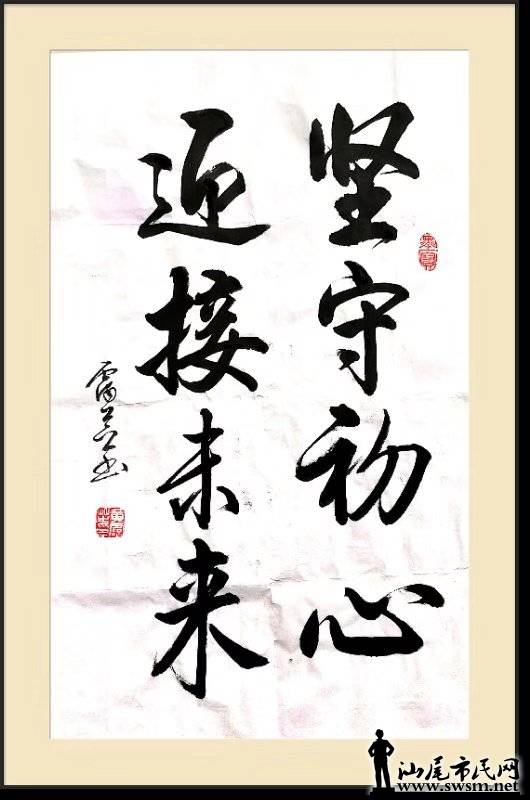 坚守初心
迎接未来
汕尾市民网
www.swsm.net